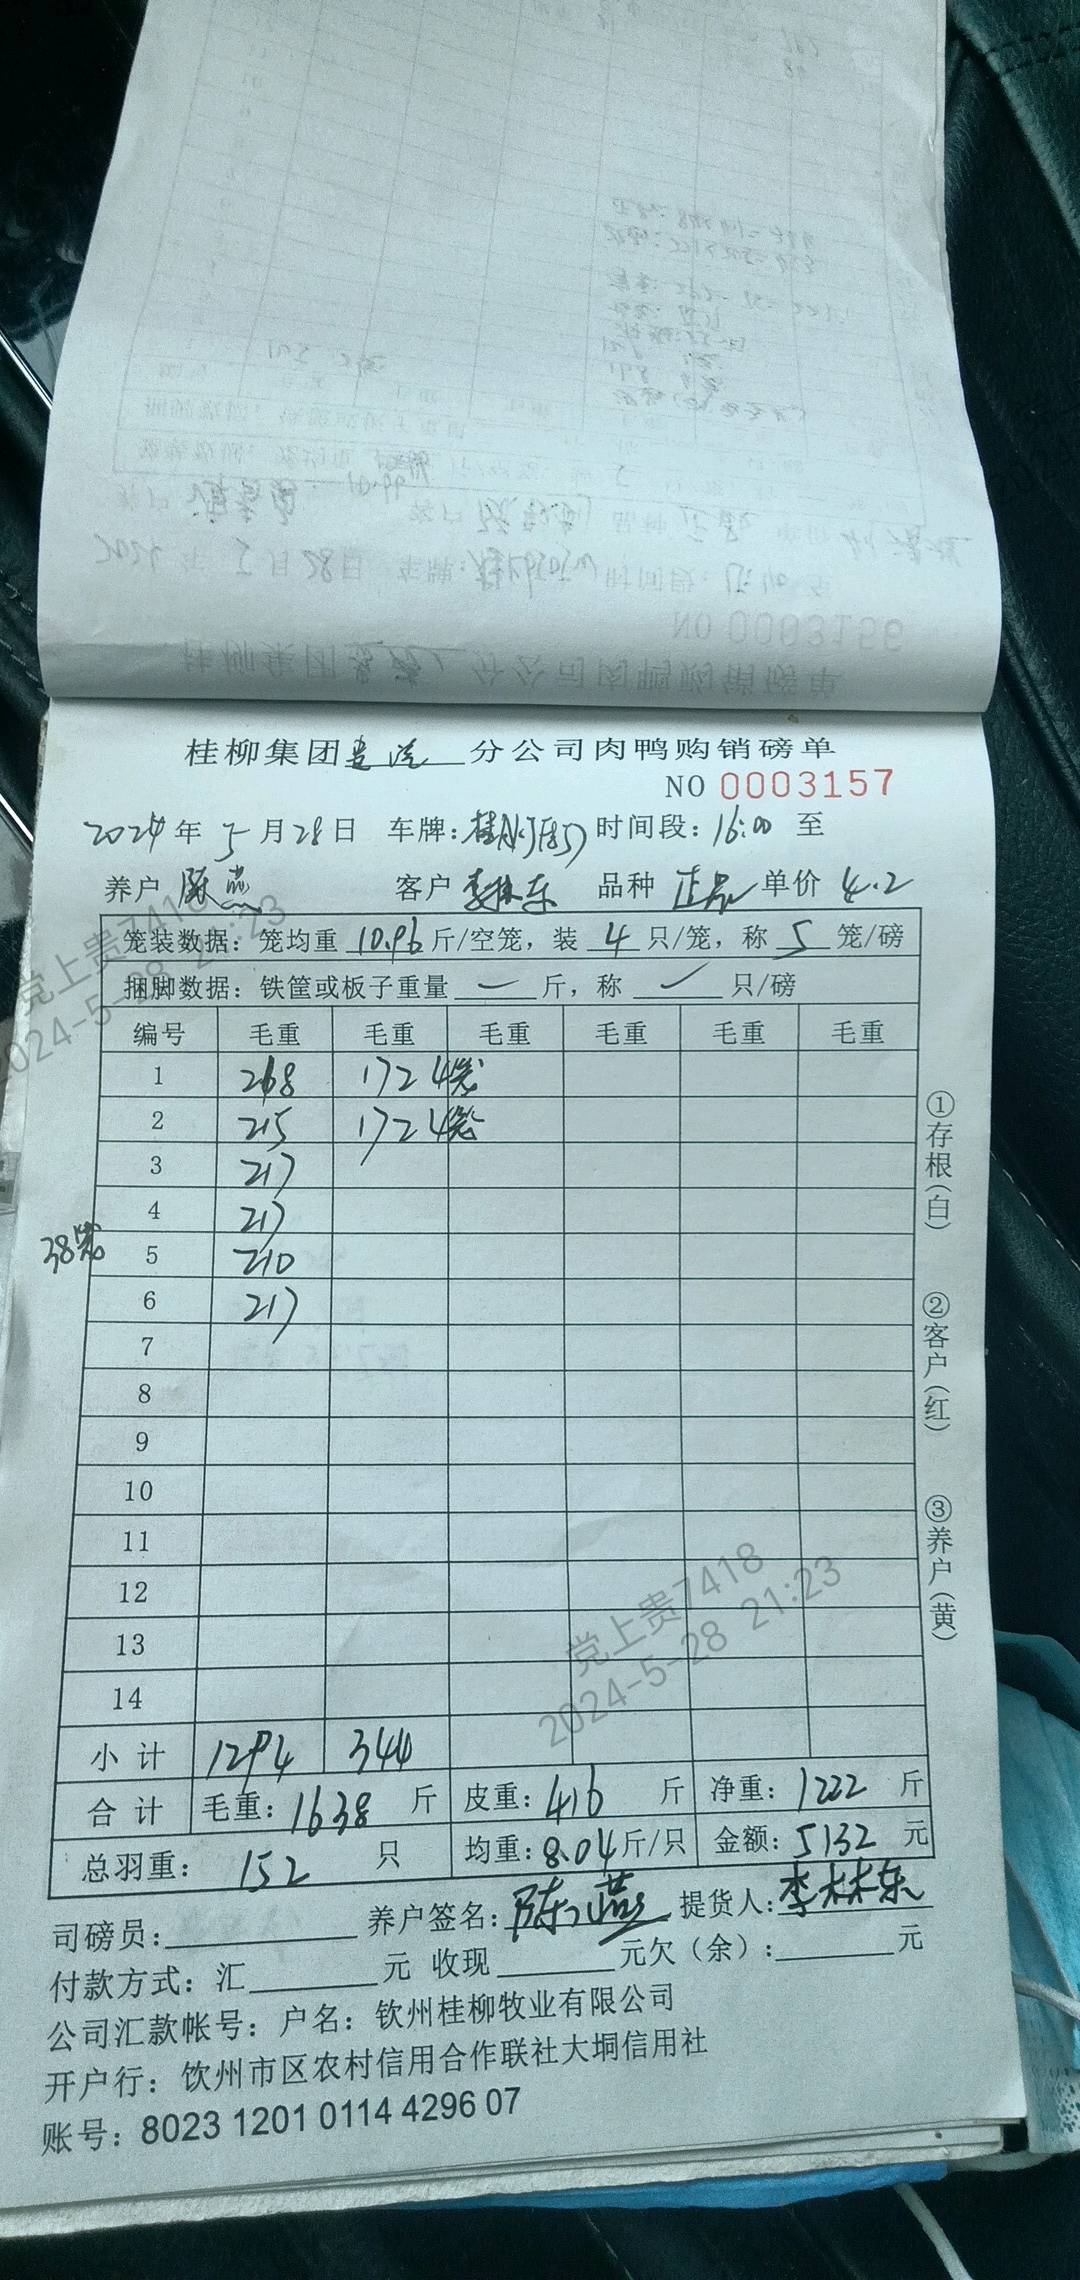 桂柳集团 分公司肉鸭购销磅单
NO 0003157
2024年5月28日 车牌: 时间段:16:00 至
养户 陈燕 客户 李林东 品种 正品 单价 4.2
笼装数据: 笼均重 10.96 斤/空笼, 装 4 只/笼, 称 5 笼/磅
捆脚数据: 铁筐或板子重量 斤, 称 只/磅
编号 毛重 毛重 毛重 毛重 毛重 毛重
1 268 172 4笼
2 215 172 4笼
3 217
4 217
38笼
5 210
6 217
7
8
9
10
11
12
13
14
小计 1294 344
合计 毛重:1638 斤 皮重:416 斤 净重:1222 斤
总羽重: 152 只 均重:8.04斤/只 金额:5132 元
司磅员: 养户签名:陈燕 提货人:李林东
付款方式: 汇 元 收现 元欠(余): 元
公司汇款帐号: 户名: 钦州桂柳牧业有限公司
开户行: 钦州市区农村信用合作联社大垌信用社
账号: 8023 1201 0114 4296 07
①存根(白)
②客户(红)
③养户(黄)
党上贵7418
2024-5-28 21:23
党上贵7418
2024-5-28 21:23
NO 0003156